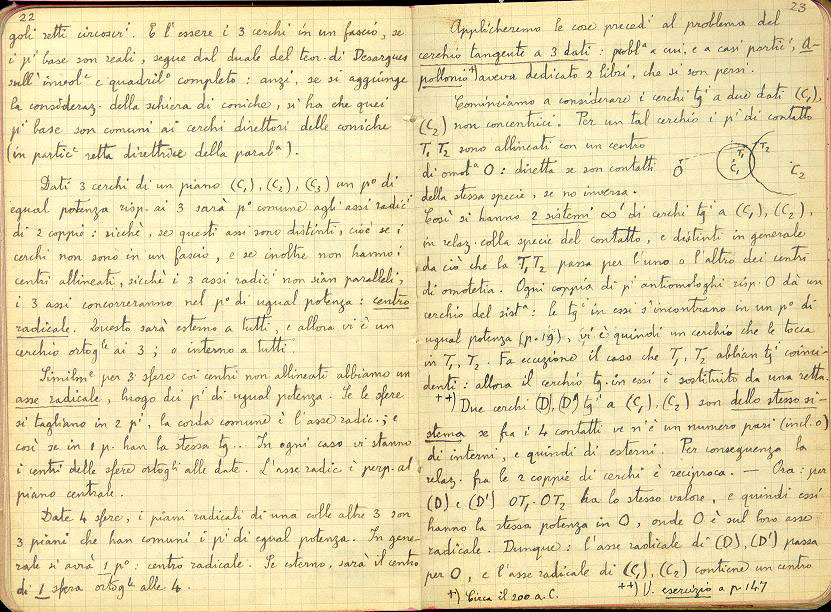 22
goli retti circoscr. E l'essere i 3 cerchi in un fascio, se
i pⁱ base son reali, segue dal duale del teor. di Desargues
sull'invol.ᵉ e quadril.º completo: anzi, se si aggiunge
la consideraz. della schiera di coniche, si ha che quei
pⁱ base son comuni ai cerchi direttori delle coniche
(in partic.ᵉ retta direttrice della parab.ᵃ).
Dati 3 cerchi di un piano (C₁), (C₂), (C₃) un pº di
egual potenza risp. ai 3 sarà pº comune agli assi radicⁱ
di 2 coppie: sicchè, se questi assi sono distinti, cioè se i
cerchi non sono in un fascio, e se inoltre non hanno i
centri allineati, sicchè i 3 assi radicⁱ non sian paralleli,
i 3 assi concorreranno nel pº di ugual potenza: centro
radicale. Questo sarà esterno a tutti, e allora vi è un
cerchio ortogˡᵉ ai 3; o interno a tutti.
Similmᵉ per 3 sfere coi centri non allineati abbiamo un
asse radicale, luogo dei pⁱ di ugual potenza. Se le sfere
si tagliano in 2 pⁱ, la corda comune è l'asse radic.; e
così se in 1 p. han la stessa tg.. In ogni caso vi stanno
i centri delle sfere ortogˡⁱ alle date. L'asse radic è perp. al
piano centrale.
Date 4 sfere, i piani radicali di una colle altre 3 son
3 piani che han comuni i pⁱ di egual potenza. In gene-
rale si avrà 1 pº: centro radicale. Se esterno, sarà il centro
di 1 sfera ortogˡᵉ alle 4.
23
Applicheremo le cose precedⁱ al problema del
cerchio tangente a 3 dati: problᵃ a cui, e a casi particⁱ, A-
pollonio⁺⁾ aveva dedicato 2 libri, che si son persi.
Cominciamo a considerare i cerchi tgⁱ a due dati (C₁),
(C₂) non concentrici. Per un tal cerchio i pⁱ di contatto
T₁ T₂ sono allineati con un centro
di omotᵃ O: diretta se son contatti
della stessa specie, se no inversa.
O T₁ C₁ T₂ C₂
Così si hanno 2 sistemi ∞¹ di cerchi tgⁱ a (C₁), (C₂),
in relaz. colla specie del contatto, e distinti in generale
da ciò che la T₁T₂ passa per l'uno o l'altro dei centri
di omotetia. Ogni coppia di pⁱ antiomologhi risp. O dà un
cerchio del sistᵃ: le tgⁱ in essi s'incontrano in un pº di
ugual potenza (p. 19), vi è quindi un cerchio che le tocca
in T₁, T₂. Fa eccezione il caso che T₁, T₂ abbian tgⁱ coinci-
denti: allora il cerchio tg. in essi è sostituito da una retta.
⁺⁺⁾ Due cerchi (D), (D') tgⁱ a (C₁), (C₂) son dello stesso si-
stema se fra i 4 contatti ve n'è un numero pari (incl. 0)
di interni, e quindi di esterni. Per conseguenza la
relaz. fra le 2 coppie di cerchi è reciproca. — Ora: per
(D) e (D') OT₁.OT₂ ha lo stesso valore, e quindi essi
hanno la stessa potenza in O, onde O è sul loro asse
radicale. Dunque: l'asse radicale di (D), (D') passa
per O, e l'asse radicale di (C₁), (C₂) contiene un centro
⁺⁾ Circa il 200 a.C. ⁺⁺⁾ V. esercizio a p 147